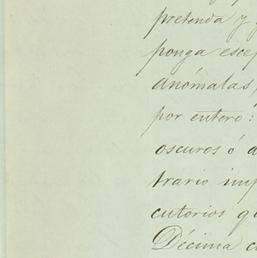 pretenda y
ponga escep
anómalas,
por entero:
oscuros ó a
trario imp
cutorios q
Décima c